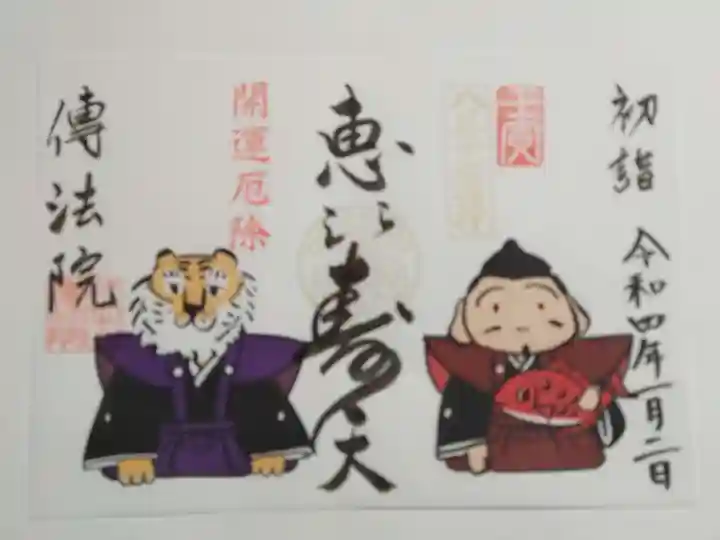 初詣 令和四年一月二日
恵比寿天
開運厄除
傳法院